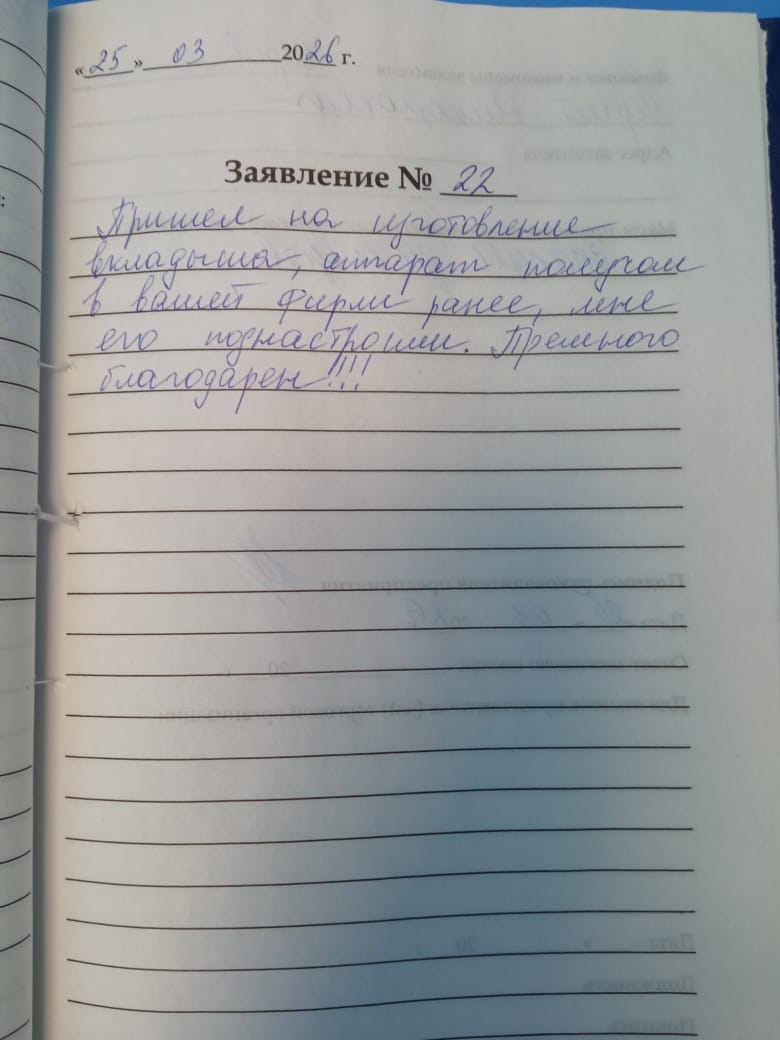 «25» 03 2026 г.
Заявление № 22
Пришел на изготовление
вкладыша, аппарат получал
в вашей фирме ранее, мне
его поднастроили. Премного
благодарен!!!